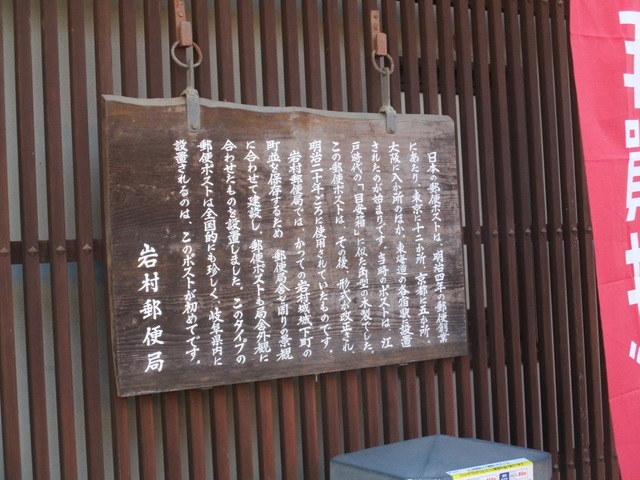 日本の郵便ポストは、明治四年の郵便創業
にあたり、東京に十二か所、京都に五か所、
大阪に八か所のほか、東海道の各宿駅に設置
されたのが始まりです。当時のポストは、江
戸時代の「目安箱」に似た角型の木製でした。
この郵便ポストは、その後、形式が改正され、
明治二十年ごろに使用されていたものです。
岩村郵便局では、かつての岩村城城下町の
町並を保存するため、郵便局舎を周りの景観
に合わせて建設し、郵便ポストも局舎外観に
合わせたものを設置しました。このタイプの
郵便ポストは全国的にも珍しく、岐阜県内に
設置されるのは、このポストが初めてです。
岩村郵便局